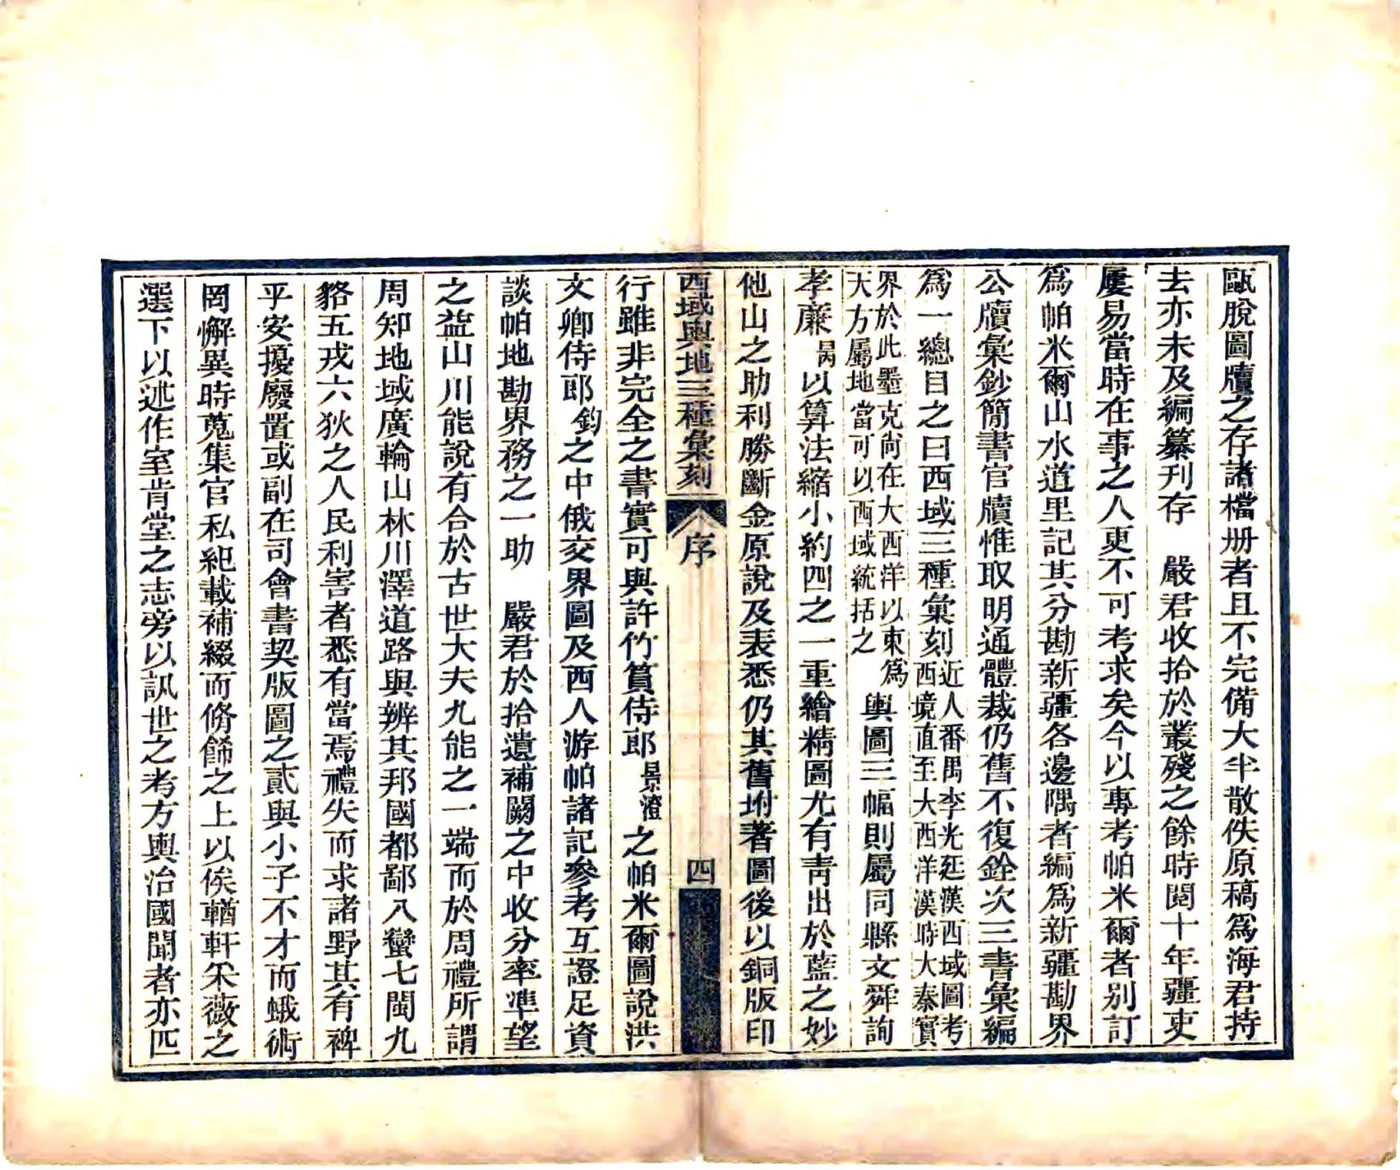 甌脫圖牘之存諸檔册者且不完備大半散佚原稿爲海君持
去亦未及編纂刊存　嚴君收拾於叢殘之餘時閱十年疆吏
屢易當時在事之人更不可考求矣今以專考帕米爾者別訂
爲帕米爾山水道里記其分勘新疆各邊隅者編爲新疆勘界
公牘彙鈔簡書官牘惟取明通體裁仍舊不復銓次三書彙編
爲一總目之曰西域三種彙刻近人番禺李光廷漢西域圖考西境直至大西洋漢時大秦實
界於此墨克尚在大西洋以東爲大方屬地當可以西域統括之　輿圖三幅則屬同縣文舜詢
孝廉昺以算法縮小約四之一重繪精圖尤有靑出於藍之妙
他山之助利勝斷金原說及表悉仍其舊坿著圖後以銅版印
西域輿地三種彙刻　序　四
行雖非完全之書實可與許竹篔侍郎景澄之帕米爾圖說洪
文卿侍郎鈞之中俄交界圖及西人游帕諸記參考互證足資
談帕地勘界務之一助　嚴君於拾遺補闕之中收分率準望
之益山川能說有合於古世大夫九能之一端而於周禮所謂
周知地域廣輪山林川澤道路與辨其邦國都鄙八蠻七閩九
貉五戎六狄之人民利害者悉有當焉禮失而求諸野其有裨
平安擾廢置或副在司會書契版圖之貳與小子不才而蛾術
罔懈異時蒐集官私紀載補綴而脩飾之上以俟輶軒采薇之
選下以述作室肯堂之志旁以訊世之考方輿治國聞者亦匹